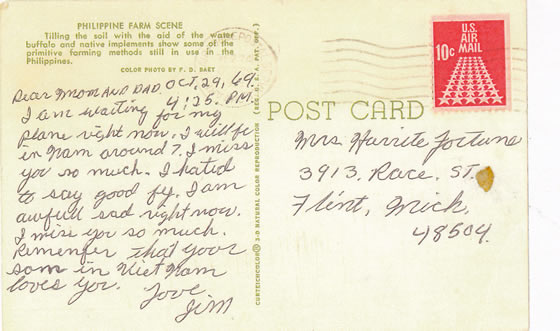 PHILIPPINE FARM SCENE
Tilling the soil with the aid of the water
buffalo and native implements show some of the
primitive farming methods still in use in the
Philippines.
COLOR PHOTO BY F. D. DAET
Dear MOM AND DAD, OCT, 29, 69.
I am waiting 4:25. P.M.
for my
plane right now. I will be
in Nam around 7. I miss
you so much. I hated
to say good by. I am
awfull sad right now.
I miss you so much.
Remember that your
son in Viet Nam
loves you. Love
Jim
CURTEICHCOLOR® 3-D NATURAL COLOR REPRODUCTION (REG. U.S.A. PAT. OFF.)
POST CARD
U.S.
AIR
MAIL
10c
Mrs Harrite Fortune
3913. Race. ST.
Flint, Mich.
48504.